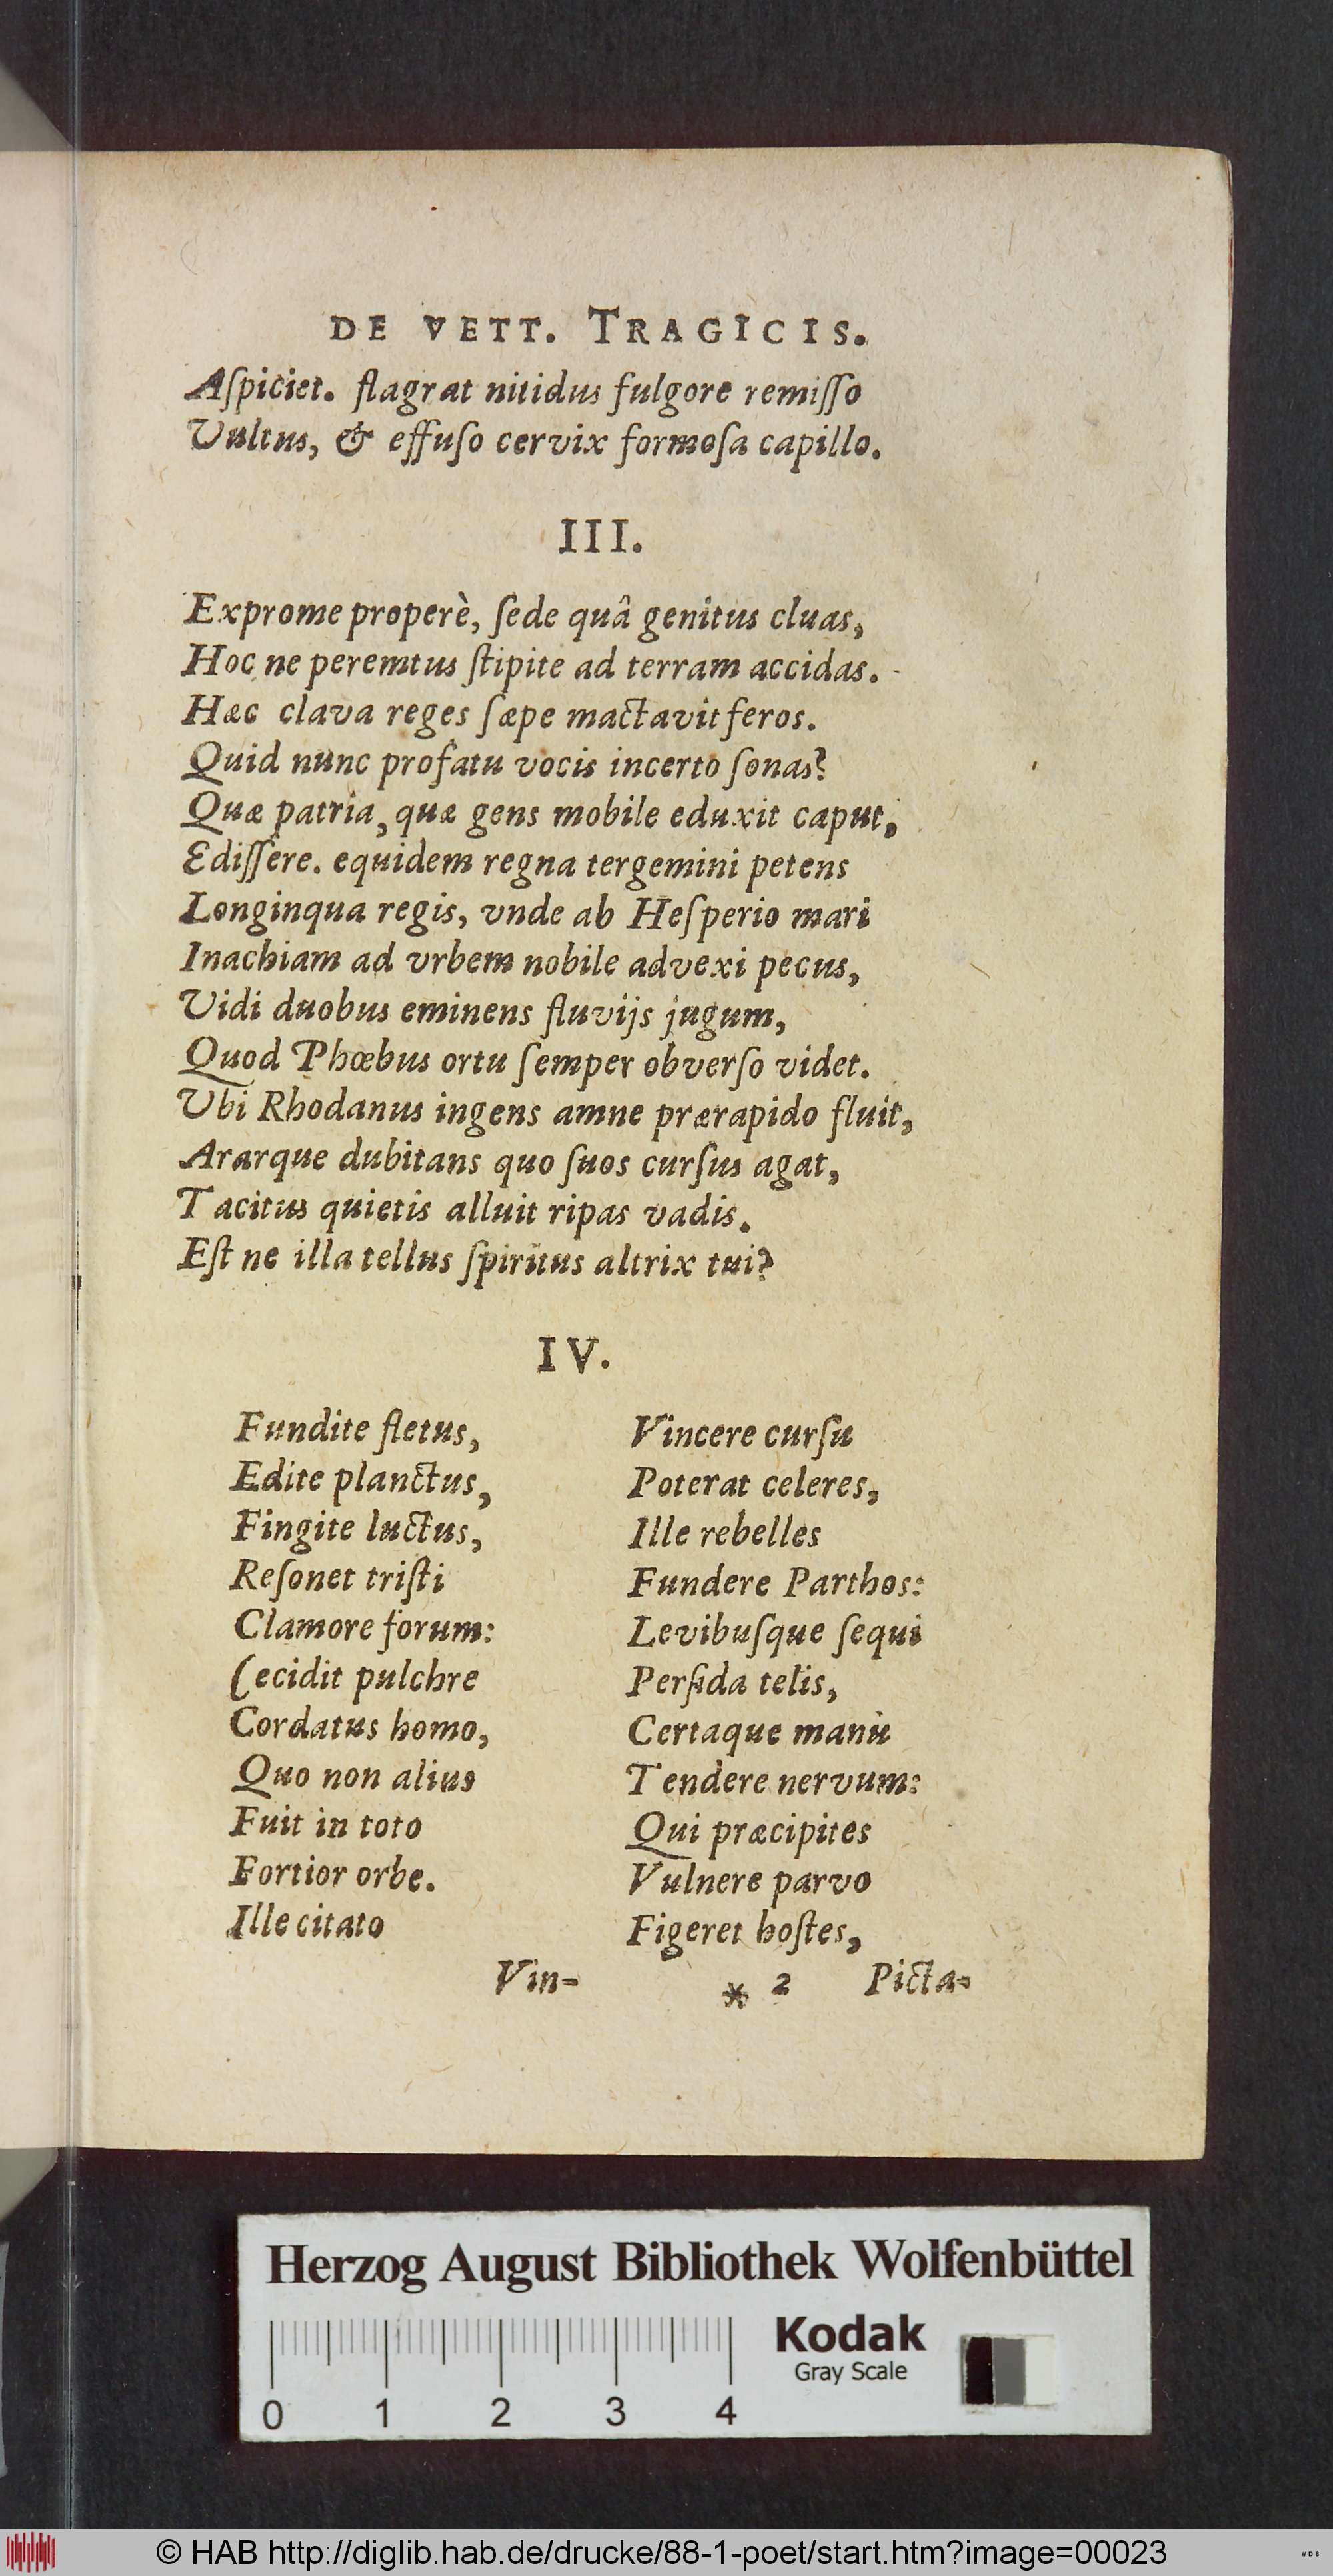 DE VETT. TRAGICIS.
Aſpiciet. flagrat nitidus fulgore remiſſo
Vultus, & effuſo cervix formoſa capillo.
III.
Exprome properè, ſede quâ genitus cluas,
Hoc ne peremtus ſtipite ad terram accidas.
Hæc clava reges ſæpe mactavit feros.
Quid nunc profatu vocis incerto ſonas?
Quæ patria, quæ gens mobile eduxit caput,
Ediſſere. equidem regna tergemini petens
Longinqua regis, vnde ab Heſperio mari
Inachiam ad vrbem nobile advexi pecus,
Vidi duobus eminens fluvijs jugum,
Quod Phœbus ortu ſemper obverſo videt.
Vbi Rhodanus ingens amne prærapido fluit,
Ararque dubitans quo ſuos curſus agat,
Tacitus quietis alluit ripas vadis.
Eſt ne illa tellus ſpiritus altrix tui?
IV.
Fundite fletus,
Edite planctus,
Fingite luctus,
Reſonet triſti
Clamore forum:
Cecidit pulchre
Cordatus homo,
Quo non alius
Fuit in toto
Fortior orbe.
Ille citato
Vin-
Vincere curſu
Poterat celeres,
Ille rebelles
Fundere Parthos:
Levibuſque ſequi
Perſida telis,
Certaque manu
Tendere nervum:
Qui præcipites
Vulnere parvo
Figeret hoſtes,
* 2 Picta-
Herzog August Bibliothek Wolfenbüttel
Kodak
Gray Scale
0 1 2 3 4
© HAB http://diglib.hab.de/drucke/88-1-poet/start.htm?image=00023